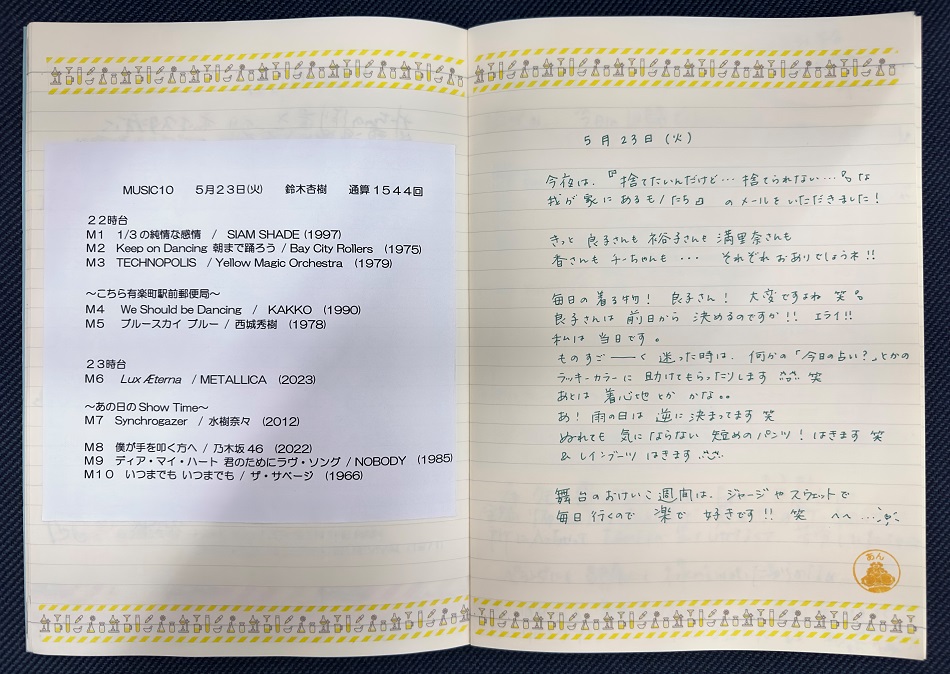 MUSIC10 5月23日(火) 鈴木杏樹 通算1544回
22時台
M1 1/3の純情な感情 / SIAM SHADE (1997)
M2 Keep on Dancing 朝まで踊ろう / Bay City Rollers (1975)
M3 TECHNOPOLIS / Yellow Magic Orchestra (1979)
～こちら有楽町駅前郵便局～
M4 We Should be Dancing / KAKKO (1990)
M5 ブルースカイ ブルー / 西城秀樹 (1978)
23時台
M6 Lux Æterna / METALLICA (2023)
～あの日のShow Time～
M7 Synchrogazer / 水樹奈々 (2012)
M8 僕が手を叩く方へ / 乃木坂46 (2022)
M9 ディア・マイ・ハート 君のためにラヴ・ソング / NOBODY (1985)
M10 いつまでも いつまでも / ザ・サベージ (1966)
5月23日(火)
今夜は、『捨てたいんだけど…捨てられない…』な
我が家にあるモノたち』のメールをいただきました!
きっと 良子さんも 裕子さんも 満里奈さんも
香さんも チーちゃんも ... それぞれ おありでしょうネ!!
毎日の着る物! 良子さん! 大変ですよね 笑。
良子さんは 前日から 決めるのですか!! エライ!!
私は 当日です。
ものすご――く 迷った時は、何かの「今日の占い?」とかの
ラッキーカラーに 助けてもらったりします 笑
あとは 着心地とか かな。。
あ! 雨の日は 逆に決まってます 笑
ぬれても 気にならない 短めのパンツ! はきます 笑
& レインブーツ はきます
舞台のおけいこ週間は、ジャージや スウェットで
毎日行くので 楽で 好きです!! 笑 へへ...
あん